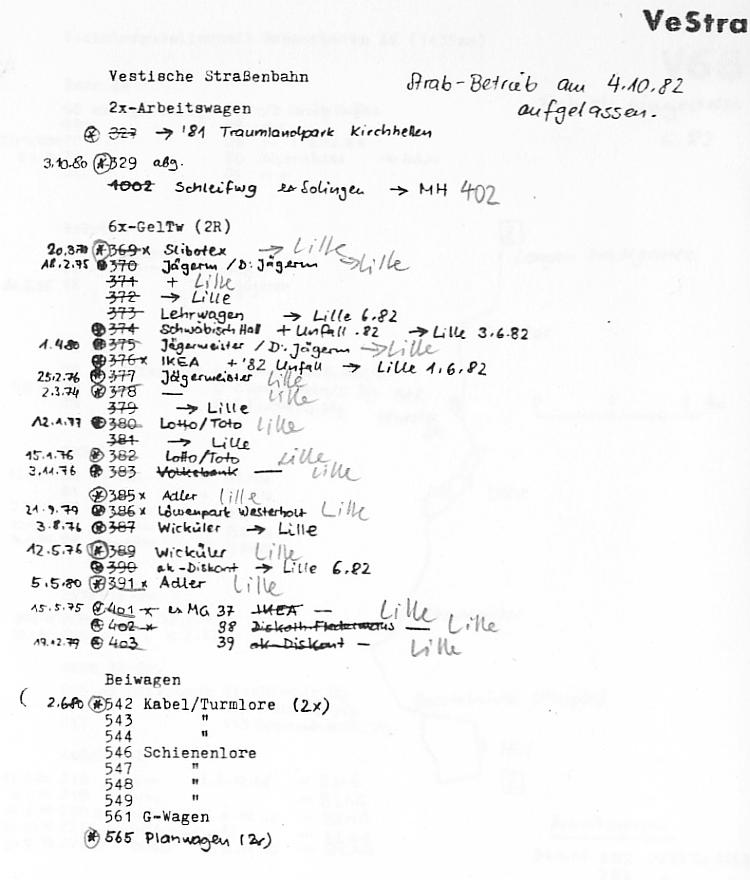 VeStra
Vestische Straßenbahn
Strab-Betrieb am 4.10.82
aufgelassen.
2x-Arbeitswagen
327 → '81 Traumlandpark Kirchhellen
3.10.80 329 abg.
1002 Schleifwg ex Solingen → MH 402
6x-GelTw (2R)
20.3.70 369 x Slibotex → Lille
18.2.75 370 Jägerm / D. Jägerm → Lille
371 + Lille
372 → Lille
373 Lehrwagen → Lille 6.82
374 Schwäbisch Hall + Unfall .82 → Lille 3.6.82
1.4.80 375 Jägermeister / D. Jägerm → Lille
376 x IKEA + '82 Unfall → Lille 1.6.82
25.2.76 377 Jägermeister Lille
2.3.74 378 — Lille
379 → Lille
12.1.77 380 Lotto/Toto Lille
381 → Lille
15.1.76 382 Lotto/Toto Lille
3.11.76 383 Volksbank — Lille
385 x Adler Lille
21.9.79 386 x Löwenpark Westerholt Lille
3.8.76 387 Wicküler → Lille
12.5.76 389 Wicküler Lille
390 ak-Diskont → Lille 6.82
5.5.80 391 x Adler Lille
15.5.75 401 x ex MG 37 IKEA — Lille
402 x 98 Diskoth. Fledermaus — Lille
19.12.79 403 39 ak-Diskont — Lille
Beiwagen
( 2.6.80 542 Kabel/Turmlore (2x)
543 "
544 "
546 Schienenlore
547 "
548 "
549 "
561 G-Wagen
565 Planwagen (2x)